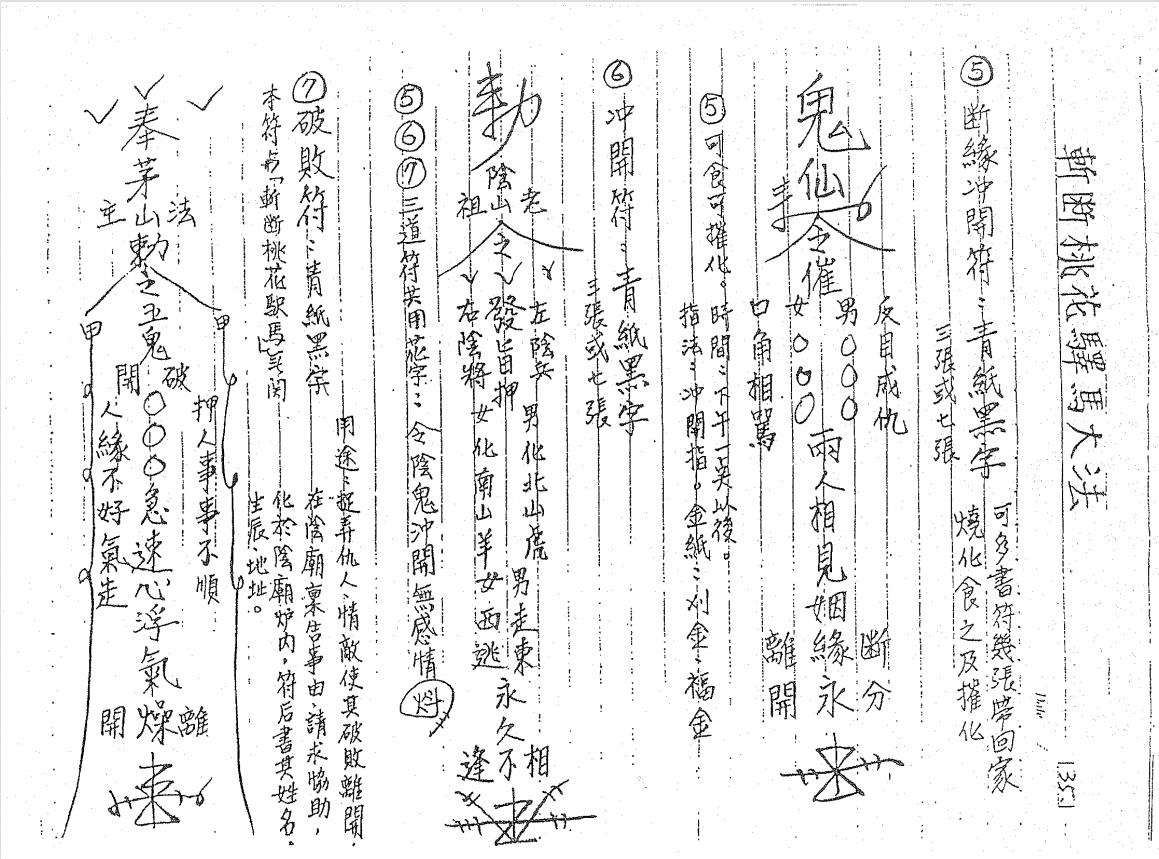 斬斷桃花驛馬大法
135-1
⑤斷緣冲開符：青紙黑字
三張或七張
可多書符幾張帶回家
燒化食之及摧化
鬼仙
令催
反目成仇
男〇〇〇
女〇〇〇
口角相罵
兩人相見姻緣永
斷分
離開
⑤可食可摧化。時間：下午一點以後。
指法：冲開指。金紙：刈金、福金
⑥冲開符：青紙黑字
三張或七張
勅
陰山老祖
令
發
左陰兵
右陰將
押
男化北山虎
女化南山羊
男走東
女西逃
永久不相逢
⑤⑥⑦三道符共用花字：令陰鬼沖開無感情
⑦破敗符：青紙黑字
本符與「斬斷桃花馭馬」無関
用途：捉弄仇人、情敵使其破敗離開，
在陰廟稟告事由、請求協助，
化於陰廟炉內，符后書其姓名、
生辰、地址。
奉茅山法主勅令五鬼
甲
甲
破開
〇〇〇急速心浮氣燥
押人事事不順
人緣不好氣走
離開